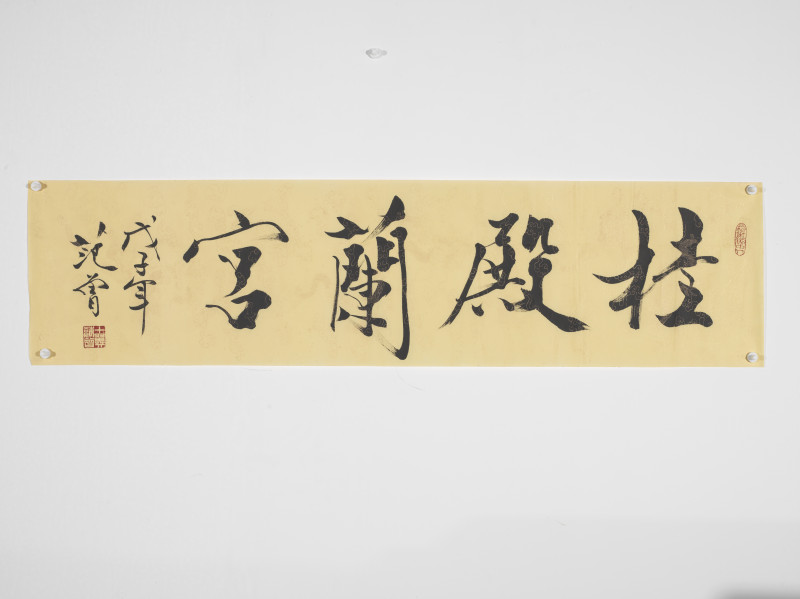 桂殿蘭宮
戊子年
范曾